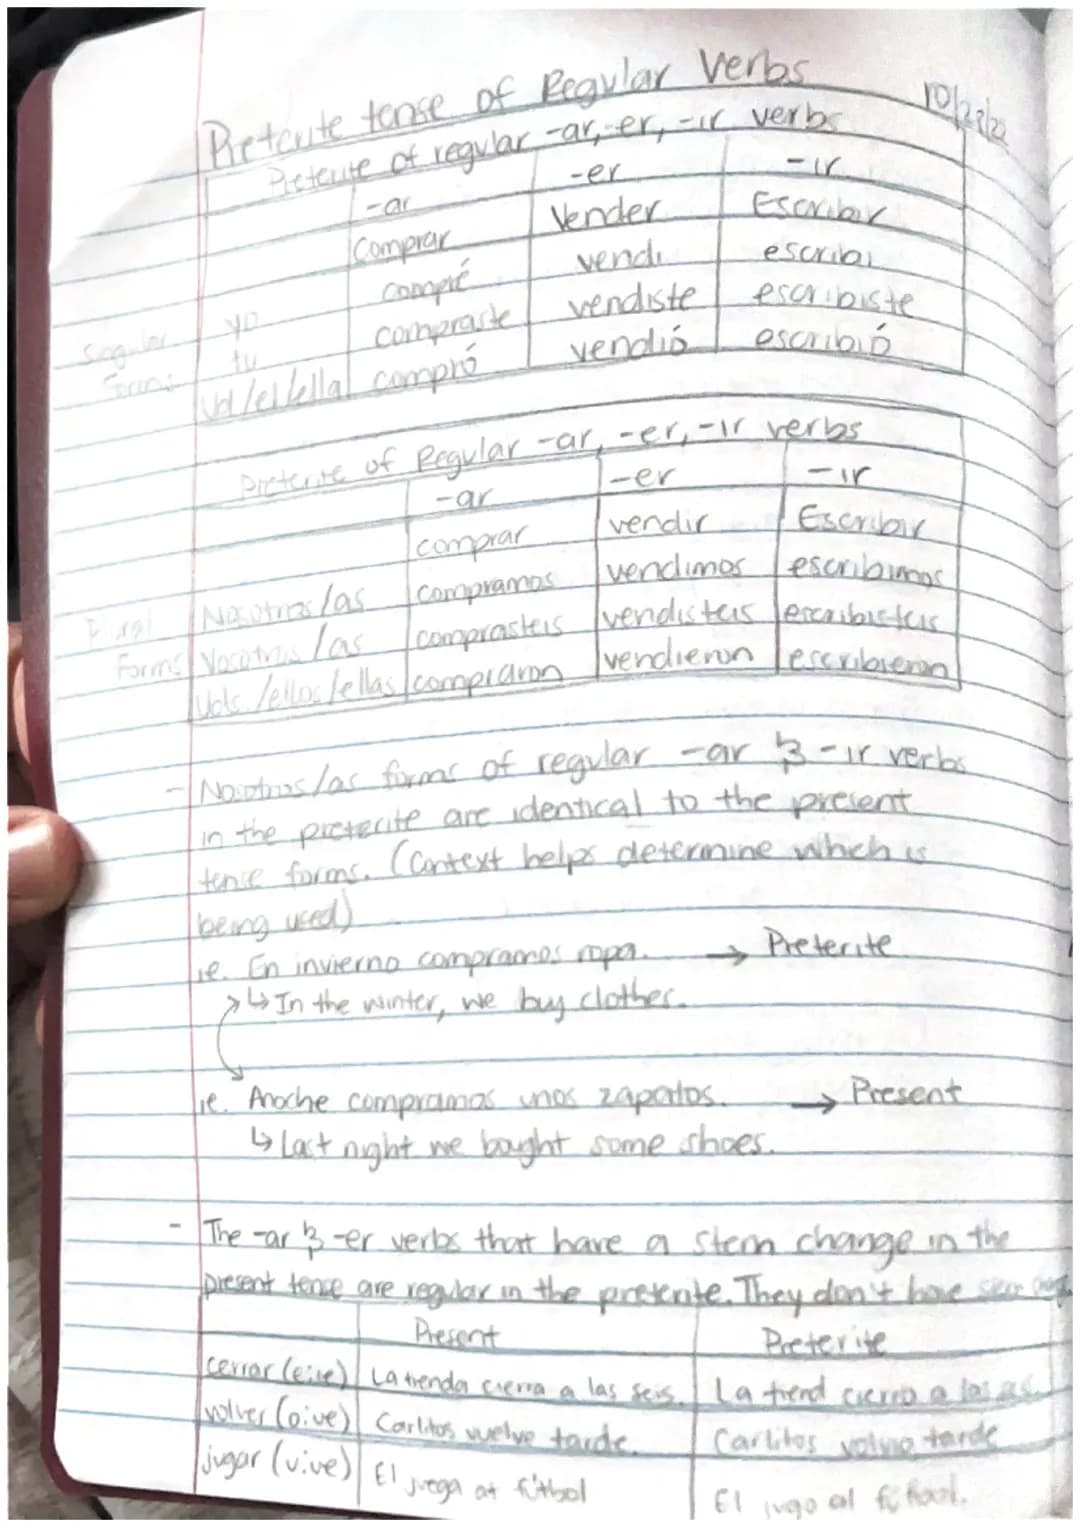 Preterite tense of Regular Verbs
10/28/22
Preterite of regular -ar, -er, -ir verbs
-ar -er -ir
Comprar Vender Escribir
yo compré vendi escribi
Singular Forms tu compraste vendiste escribiste
Ud/el/ella compró vendió escribió
Preterite of Regular -ar, -er, -ir verbs
-ar -er -ir
comprar vendir Escribir
Nosotros/as compramos vendimos escribimos
Plural Forms Vosotros/as comprasteis vendisteis escribisteis
Uds./ellos/ellas compraron vendieron escribieron
- Nosotros/as forms of regular -ar & -ir verbs
in the preterite are identical to the present
tense forms. (Context helps determine which is
being used)
ie. En invierno compramos ropa. → Preterite
↳ In the winter, we buy clothes.
ie. Anoche compramos unos zapatos. → Present
↳ Last night we bought some shoes.
- The -ar & -er verbs that have a stem change in the
present tense are regular in the preterite. They don't have stem
Present Preterite
cerrar (e:ie) La tienda cierra a las seis. La tiend cierro a las
volver (o:ue) Carlitos vuelve tarde. Carlitos volvio tarde
jugar (u:ue) El juega at fútbol El jugo al fútbol.